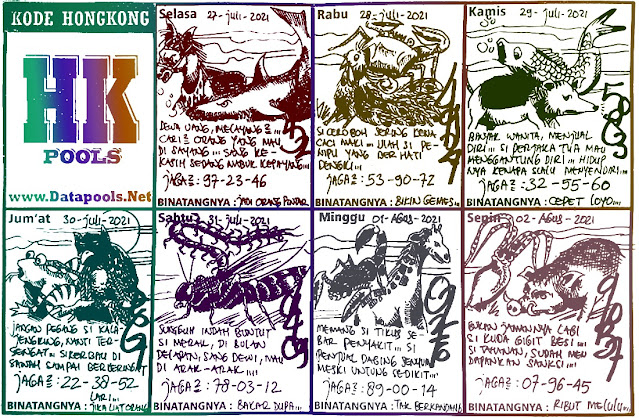 KODE HONGKONG
HK
POOLS
www.Datapools.Net
Selasa 27-juli-2021
DEWA UANG, MELAYANG2 ...
CARI2 ORANG YANG MAU
DI SAYANG ... SANG KE-
KASIH SEDANG MABUK KEPAYANG...
JAGA2: 97-23-46
BINATANGNYA: JADI ORANG PINTAR
Rabu 28-juli-2021
SI CEROBOH SERING KENA
CACI MAKI ... ULAH SI PE-
NIPU YANG BER HATI
DENGKI ...
JAGA2: 53-90-72
BINATANGNYA: BIKIN GEMES...
Kamis 29-juli-2021
BANYAK WANITA, MENJUAL
DIRI ... SI PERJAKA TUA MAU
MENGGANTUNG DIRI ... HIDUP
NYA KENAPA SLALU MENYENDIRI...
JAGA2: 32-55-60
BINATANGNYA: CEPET LOYO...
Jum'at 30-juli-2021
JANGAN PEGANG SI KALA-
JENGKING, NANTI TER-
SENGAT... SI KERBAU DI
SAWAH SAMPAI BERKERINGAT
JAGA2: 22-38-52
LARI...
BINATANGNYA: JIKA LIAT ORANG
Sabtu 31-juli-2021
SUNGGUH INDAH BUNTUT
SI MERAK, DI BULAN
DELAPAN, SANG DEWI, MAU
DI ARAK-ARAK ...
JAGA2: 78-03-12
BINATANGNYA: BAKAR DUPA...
Minggu 01-AGUS-2021
MEMANG SI TIKUS SE-
BAR PENYAKIT... SI
PENJUAL DAGING SENYUM
MESKI UNTUNG SEDIKIT...
JAGA2: 89-00-14
BINATANGNYA: TAK BERKANDANG
Senin 02-AGUS-2021
BUKAN JAMANNYA LAGI
SI KUDA GIGIT BESI ...
SI TAHANAN, SUDAH MEN
DAPATKAN SANKSI ...
JAGA2: 07-96-45
BINATANGNYA: RIBUT MELULU...